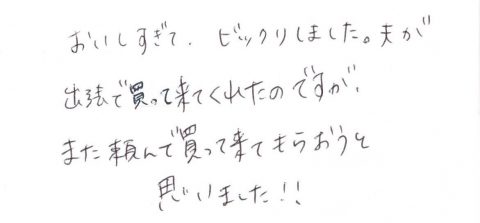 おいしすぎて、ビックリしました。夫が
出張で買って来てくれたのですが、
また頼んで買って来てもらおうと
思いました!!